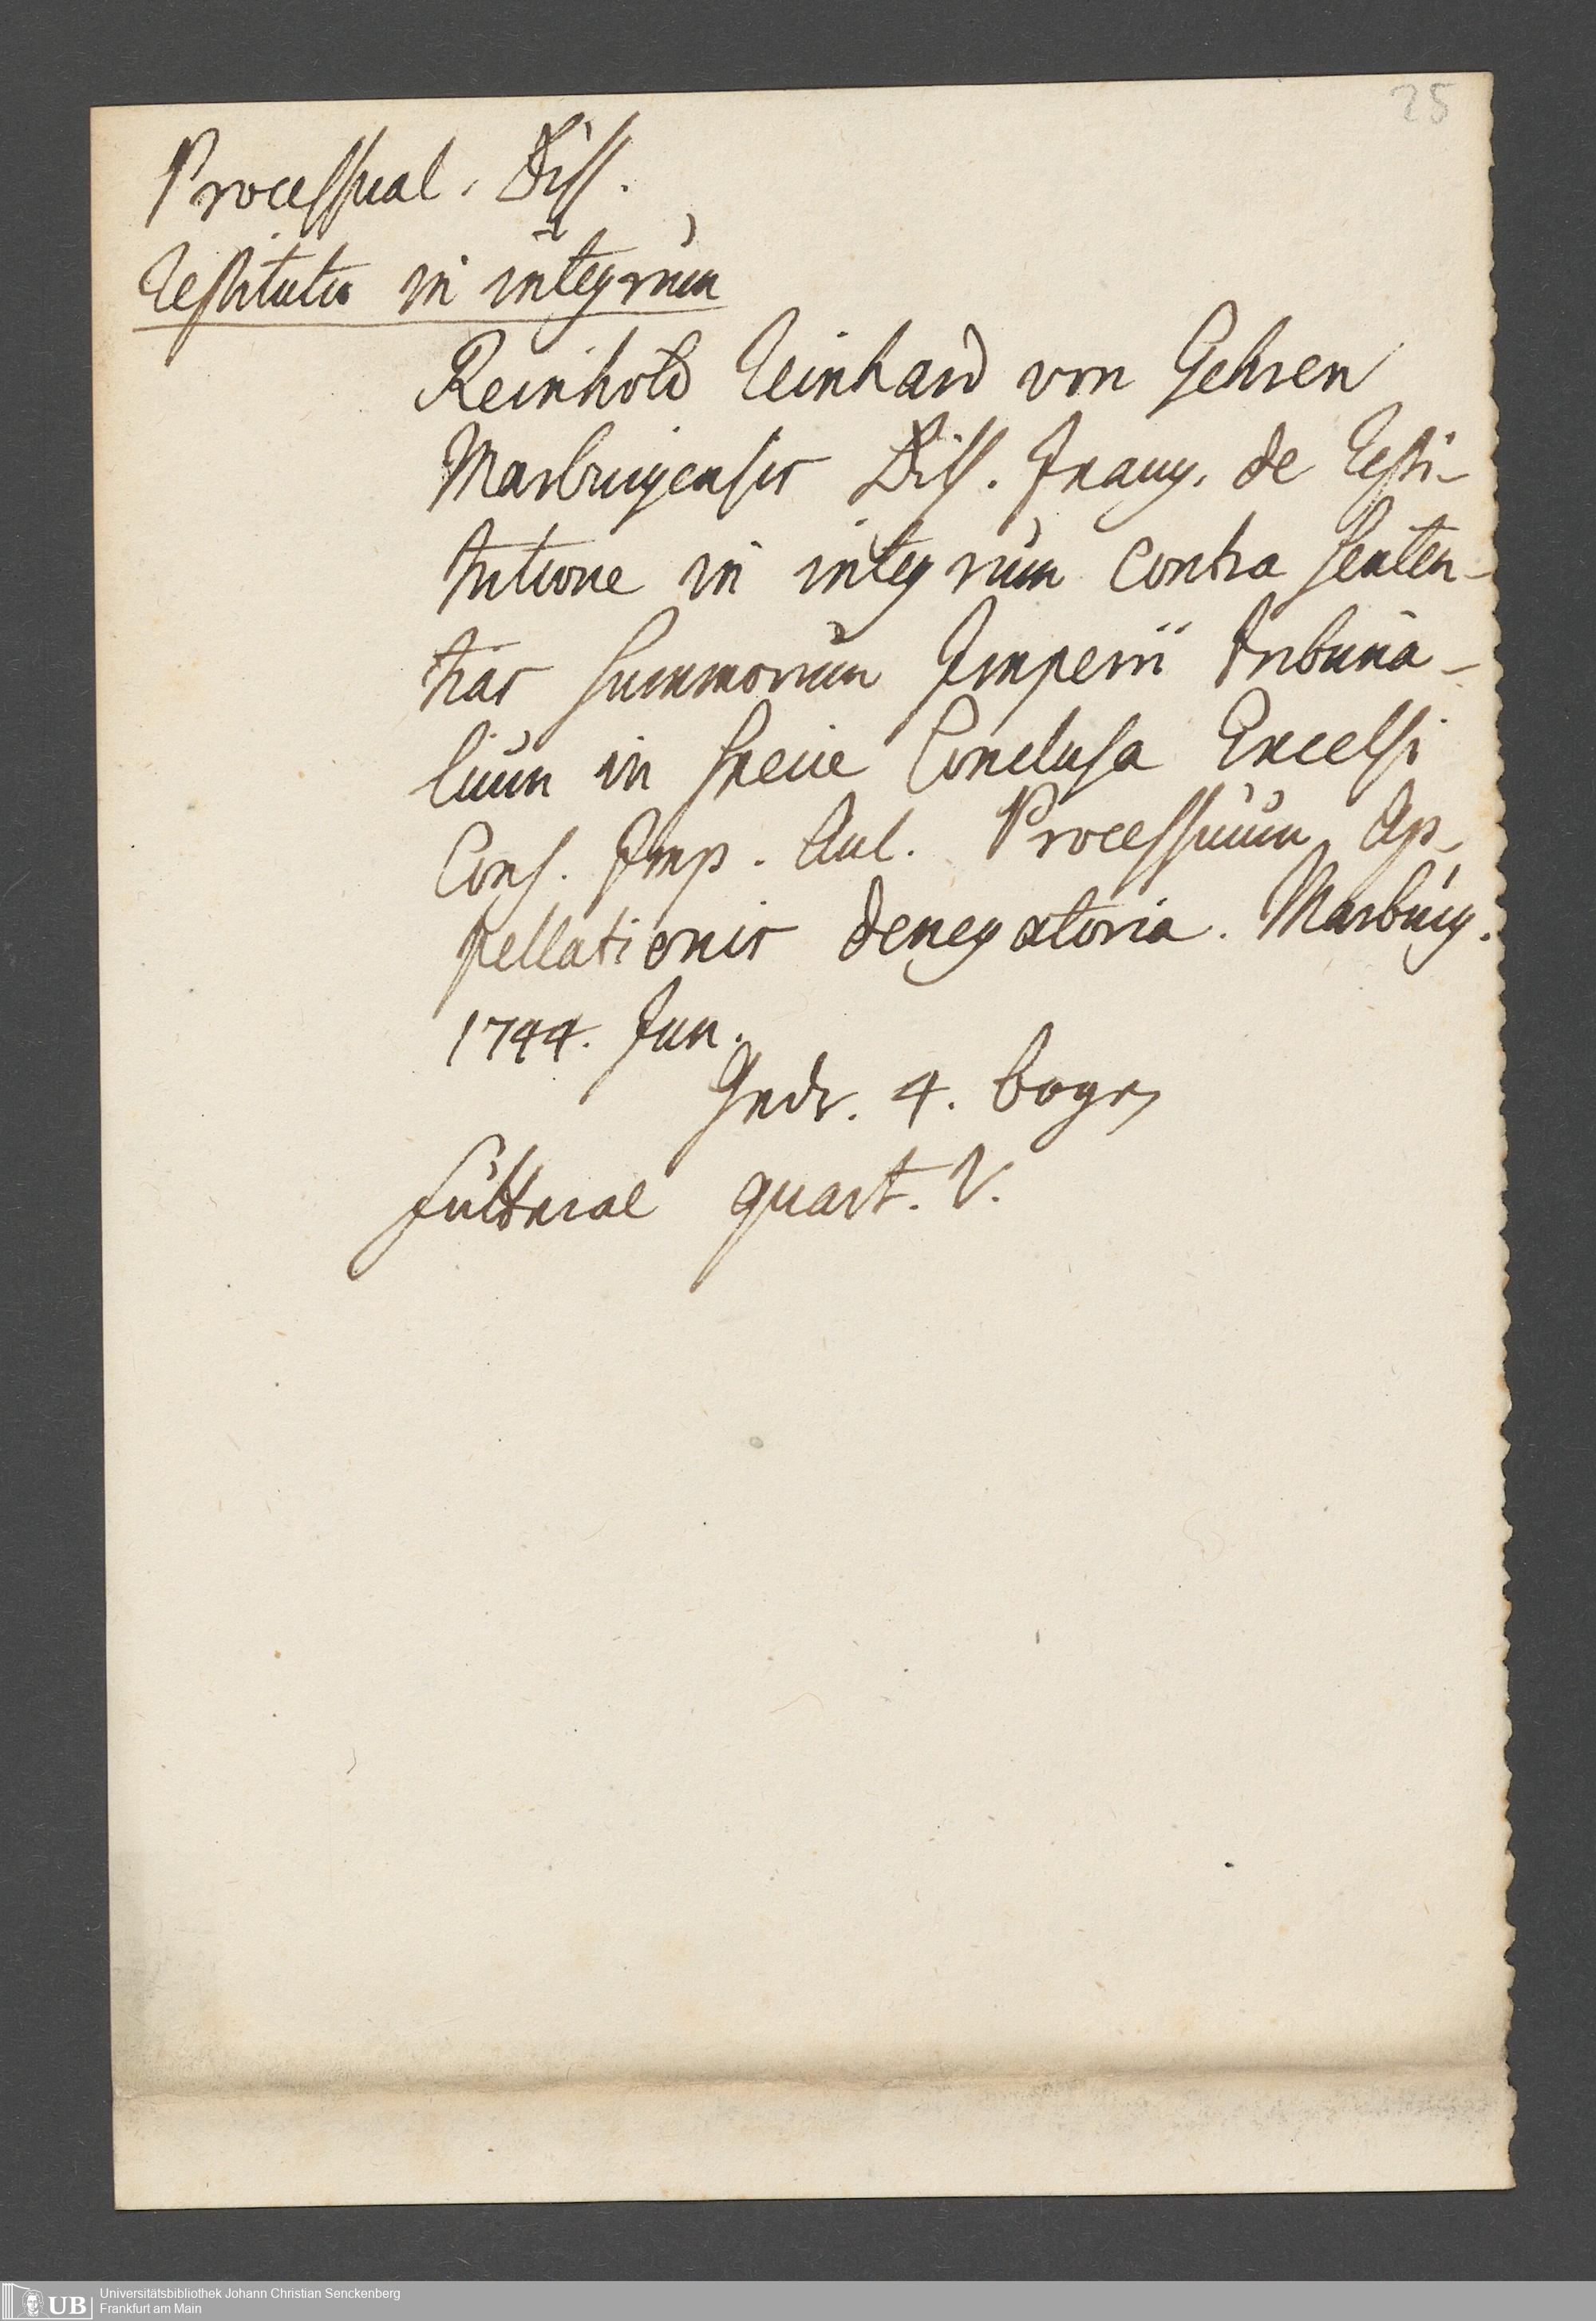 25
Processual. Diss.
Restitutio in integrum
Reinhold Reinhard von Gehren
Marburgensis Diss. Inaug. de Resti-
tutione in integrum contra senten-
tias summorum Imperii tribuna-
lium in specie Conclusa Excelsi
Cons. Imp. Aul. Processuum Ap-
pellationis denegatoria. Marburg.
1744. Jun.
4. bogen
quart. V.
Universitätsbibliothek Johann Christian Senckenberg
Frankfurt am Main
UB